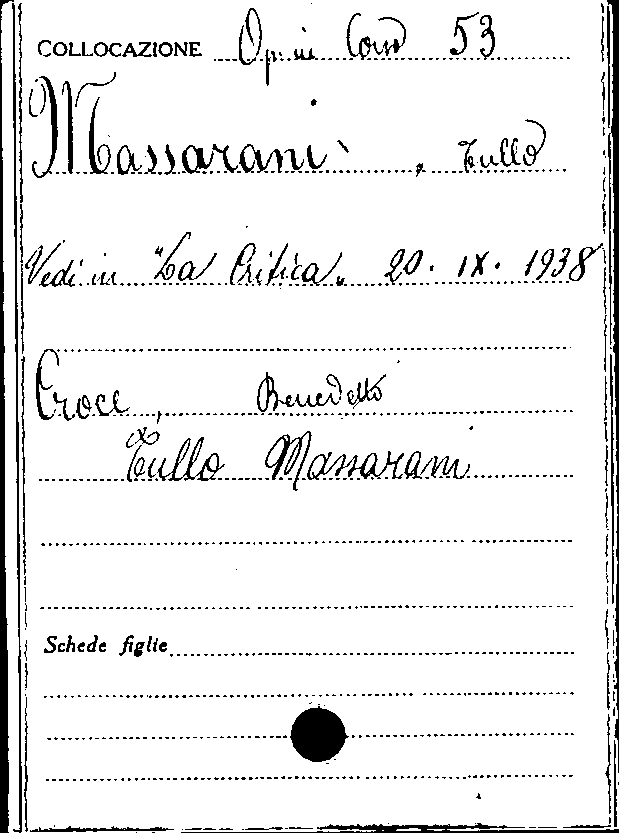 COLLOCAZIONE Op. in Corso 53
Massarani , Tullo
Vedi in "La Critica„ 20. IX. 1938
Croce, Benedetto
Tullo Massarani
Schede figlie